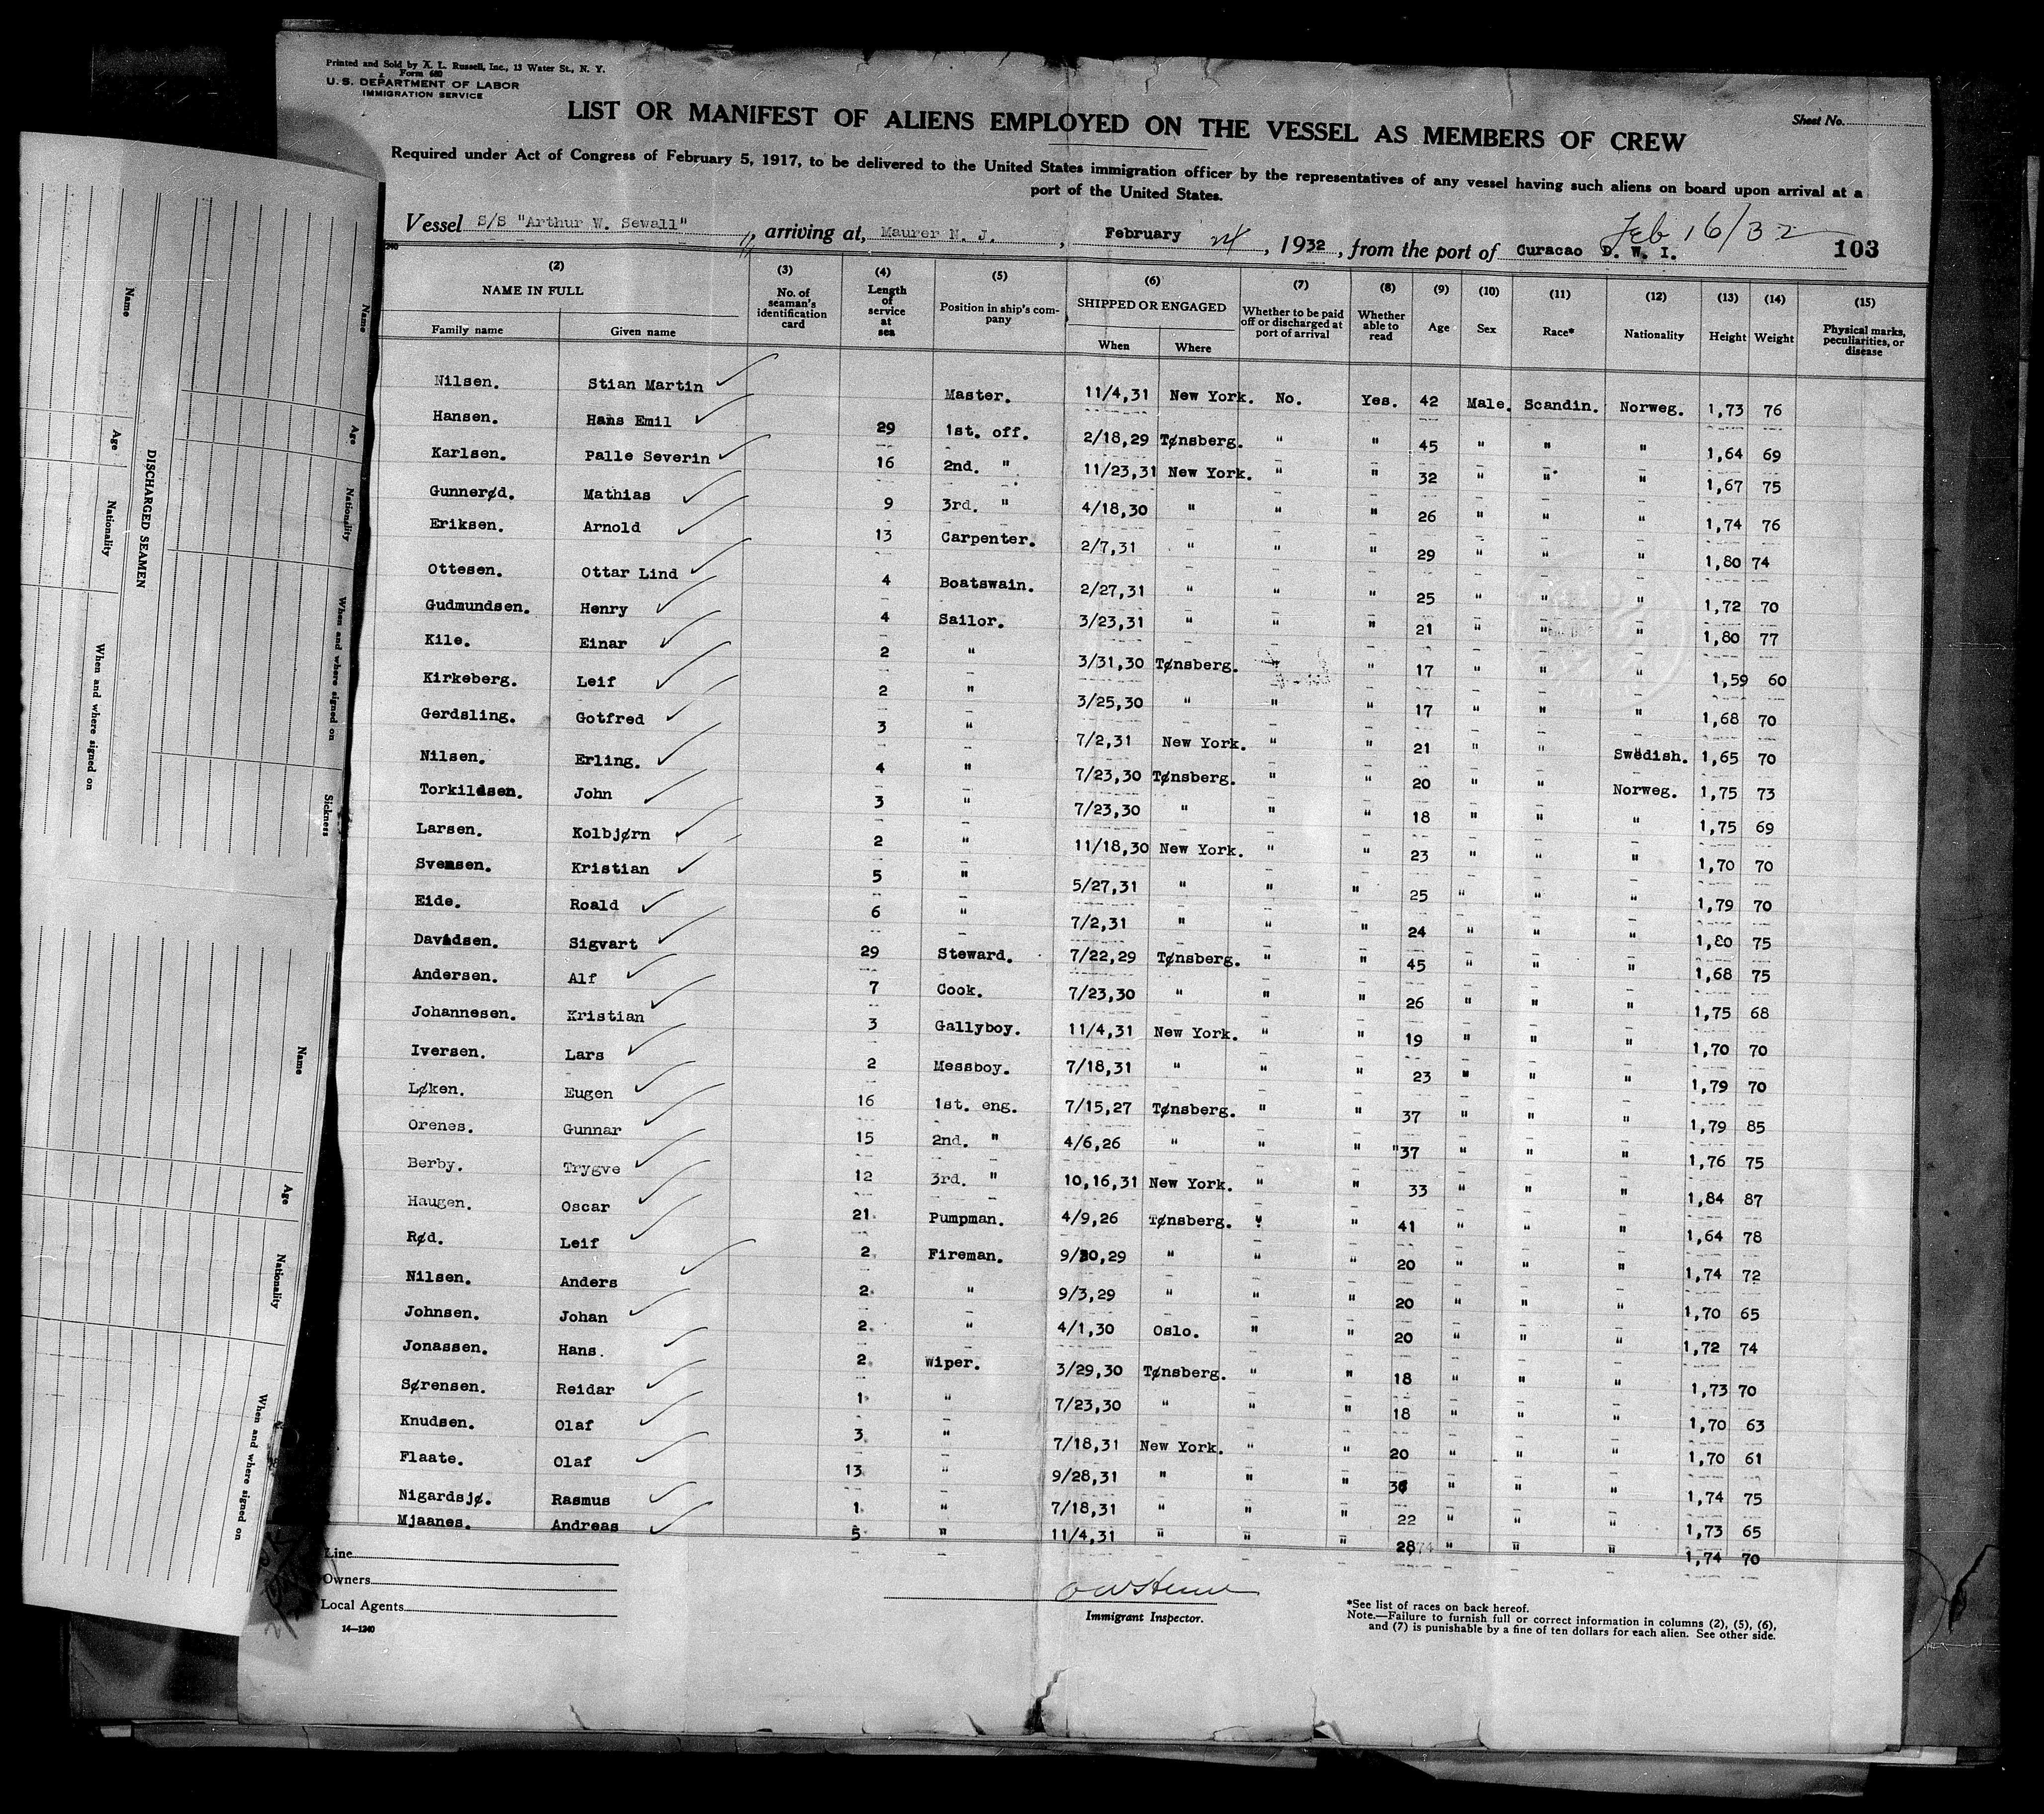 Printed and Sold by X. L. Russell, Inc., 13 Water St., N. Y.
Form 680
U. S. DEPARTMENT OF LABOR
IMMIGRATION SERVICE
LIST OR MANIFEST OF ALIENS EMPLOYED ON THE VESSEL AS MEMBERS OF CREW
Sheet No.
Required under Act of Congress of February 5, 1917, to be delivered to the United States immigration officer by the representatives of any vessel having such aliens on board upon arrival at a
port of the United States.
Feb 16/32
Vessel S/S "Arthur W. Sewall", arriving at, Maurer N. J., February 24, 1932, from the port of Curacao D. W. I. 103
(2) (3) (4) (5) (6) (7) (8) (9) (10) (11) (12) (13) (14) (15)
NAME IN FULL No. of seaman's identification card Length of service at sea Position in ship's company SHIPPED OR ENGAGED Whether to be paid off or discharged at port of arrival Whether able to read Age Sex Race* Nationality Height Weight Physical marks, peculiarities, or disease
Family name Given name When Where
Nilsen. Stian Martin Master. 11/4,31 New York. No. Yes. 42 Male. Scandin. Norweg. 1,73 76
Hansen. Hans Emil 29 1st. off. 2/18,29 Tønsberg. " " 45 " " " 1,64 69
Karlsen. Palle Severin 16 2nd. " 11/23,31 New York. " " 32 " " " 1,67 75
Gunnerød. Mathias 9 3rd. " 4/18,30 " " " 26 " " " 1,74 76
Eriksen. Arnold 13 Carpenter. 2/7,31 " " " 29 " " " 1,80 74
Ottesen. Ottar Lind 4 Boatswain. 2/27,31 " " " 25 " " " 1,72 70
Gudmundsen. Henry 4 Sailor. 3/23,31 " " " 21 " " " 1,80 77
Kile. Einar 2 " 3/31,30 Tønsberg. " 17 " " " 1,59 60
Kirkeberg. Leif 2 " 3/25,30 " " " 17 " " " 1,68 70
Gerdsling. Gotfred 3 " 7/2,31 New York. " " 21 " " Swedish. 1,65 70
Nilsen. Erling. 4 " 7/23,30 Tønsberg. " " 20 " " Norweg. 1,75 73
Torkildsen. John 3 " 7/23,30 " " " 18 " " " 1,75 69
Larsen. Kolbjørn 2 " 11/18,30 New York. " " 23 " " " 1,70 70
Svensen. Kristian 5 " 5/27,31 " " " 25 " " " 1,79 70
Eide. Roald 6 " 7/2,31 " " " 24 " " " 1,80 75
Davidsen. Sigvart 29 Steward. 7/22,29 Tønsberg. " " 45 " " " 1,68 75
Andersen. Alf 7 Cook. 7/23,30 " " " 26 " " " 1,75 68
Johannesen. Kristian 3 Gallyboy. 11/4,31 New York. " " 19 " " " 1,70 70
Iversen. Lars 2 Messboy. 7/18,31 " " " 23 " " " 1,79 70
Løken. Eugen 16 1st. eng. 7/15,27 Tønsberg. " " 37 " " " 1,79 85
Orenes. Gunnar 15 2nd. " 4/6,26 " " " "37 " " " 1,76 75
Berby. Trygve 12 3rd. " 10,16,31 New York. " " 33 " " " 1,84 87
Haugen. Oscar 21. Pumpman. 4/9,26 Tønsberg. " " 41 " " " 1,64 78
Rød. Leif 2. Fireman. 9/30,29 " " " 20 " " " 1,74 72
Nilsen. Anders 2. " 9/3,29 " " " 20 " " " 1,70 65
Johnsen. Johan 2. " 4/1,30 Oslo. " " 20 " " " 1,72 74
Jonassen. Hans. 2. Wiper. 3/29,30 Tønsberg. " " 18 " " " 1,73 70
Sørensen. Reidar 1. " 7/23,30 " " " 18 " " " 1,70 63
Knudsen. Olaf 3. " 7/18,31 New York. " " 20 " " " 1,70 61
Flaate. Olaf 13. " 9/28,31 " " " " " " 1,74 75
Nigardsjø. Rasmus 1. " 7/18,31 " " " 22 " " " 1,73 65
Mjaanes. Andreas 5. " 11/4,31 " " " 28 " " " 1,74 70
Line
Owners
Local Agents
14—1240
Immigrant Inspector.
*See list of races on back hereof.
Note.—Failure to furnish full or correct information in columns (2), (5), (6),
and (7) is punishable by a fine of ten dollars for each alien. See other side.
DISCHARGED SEAMEN
Name Age Nationality When and where signed on
Name Age Nationality When and where signed on Sickness
Name Age Nationality When and where signed on